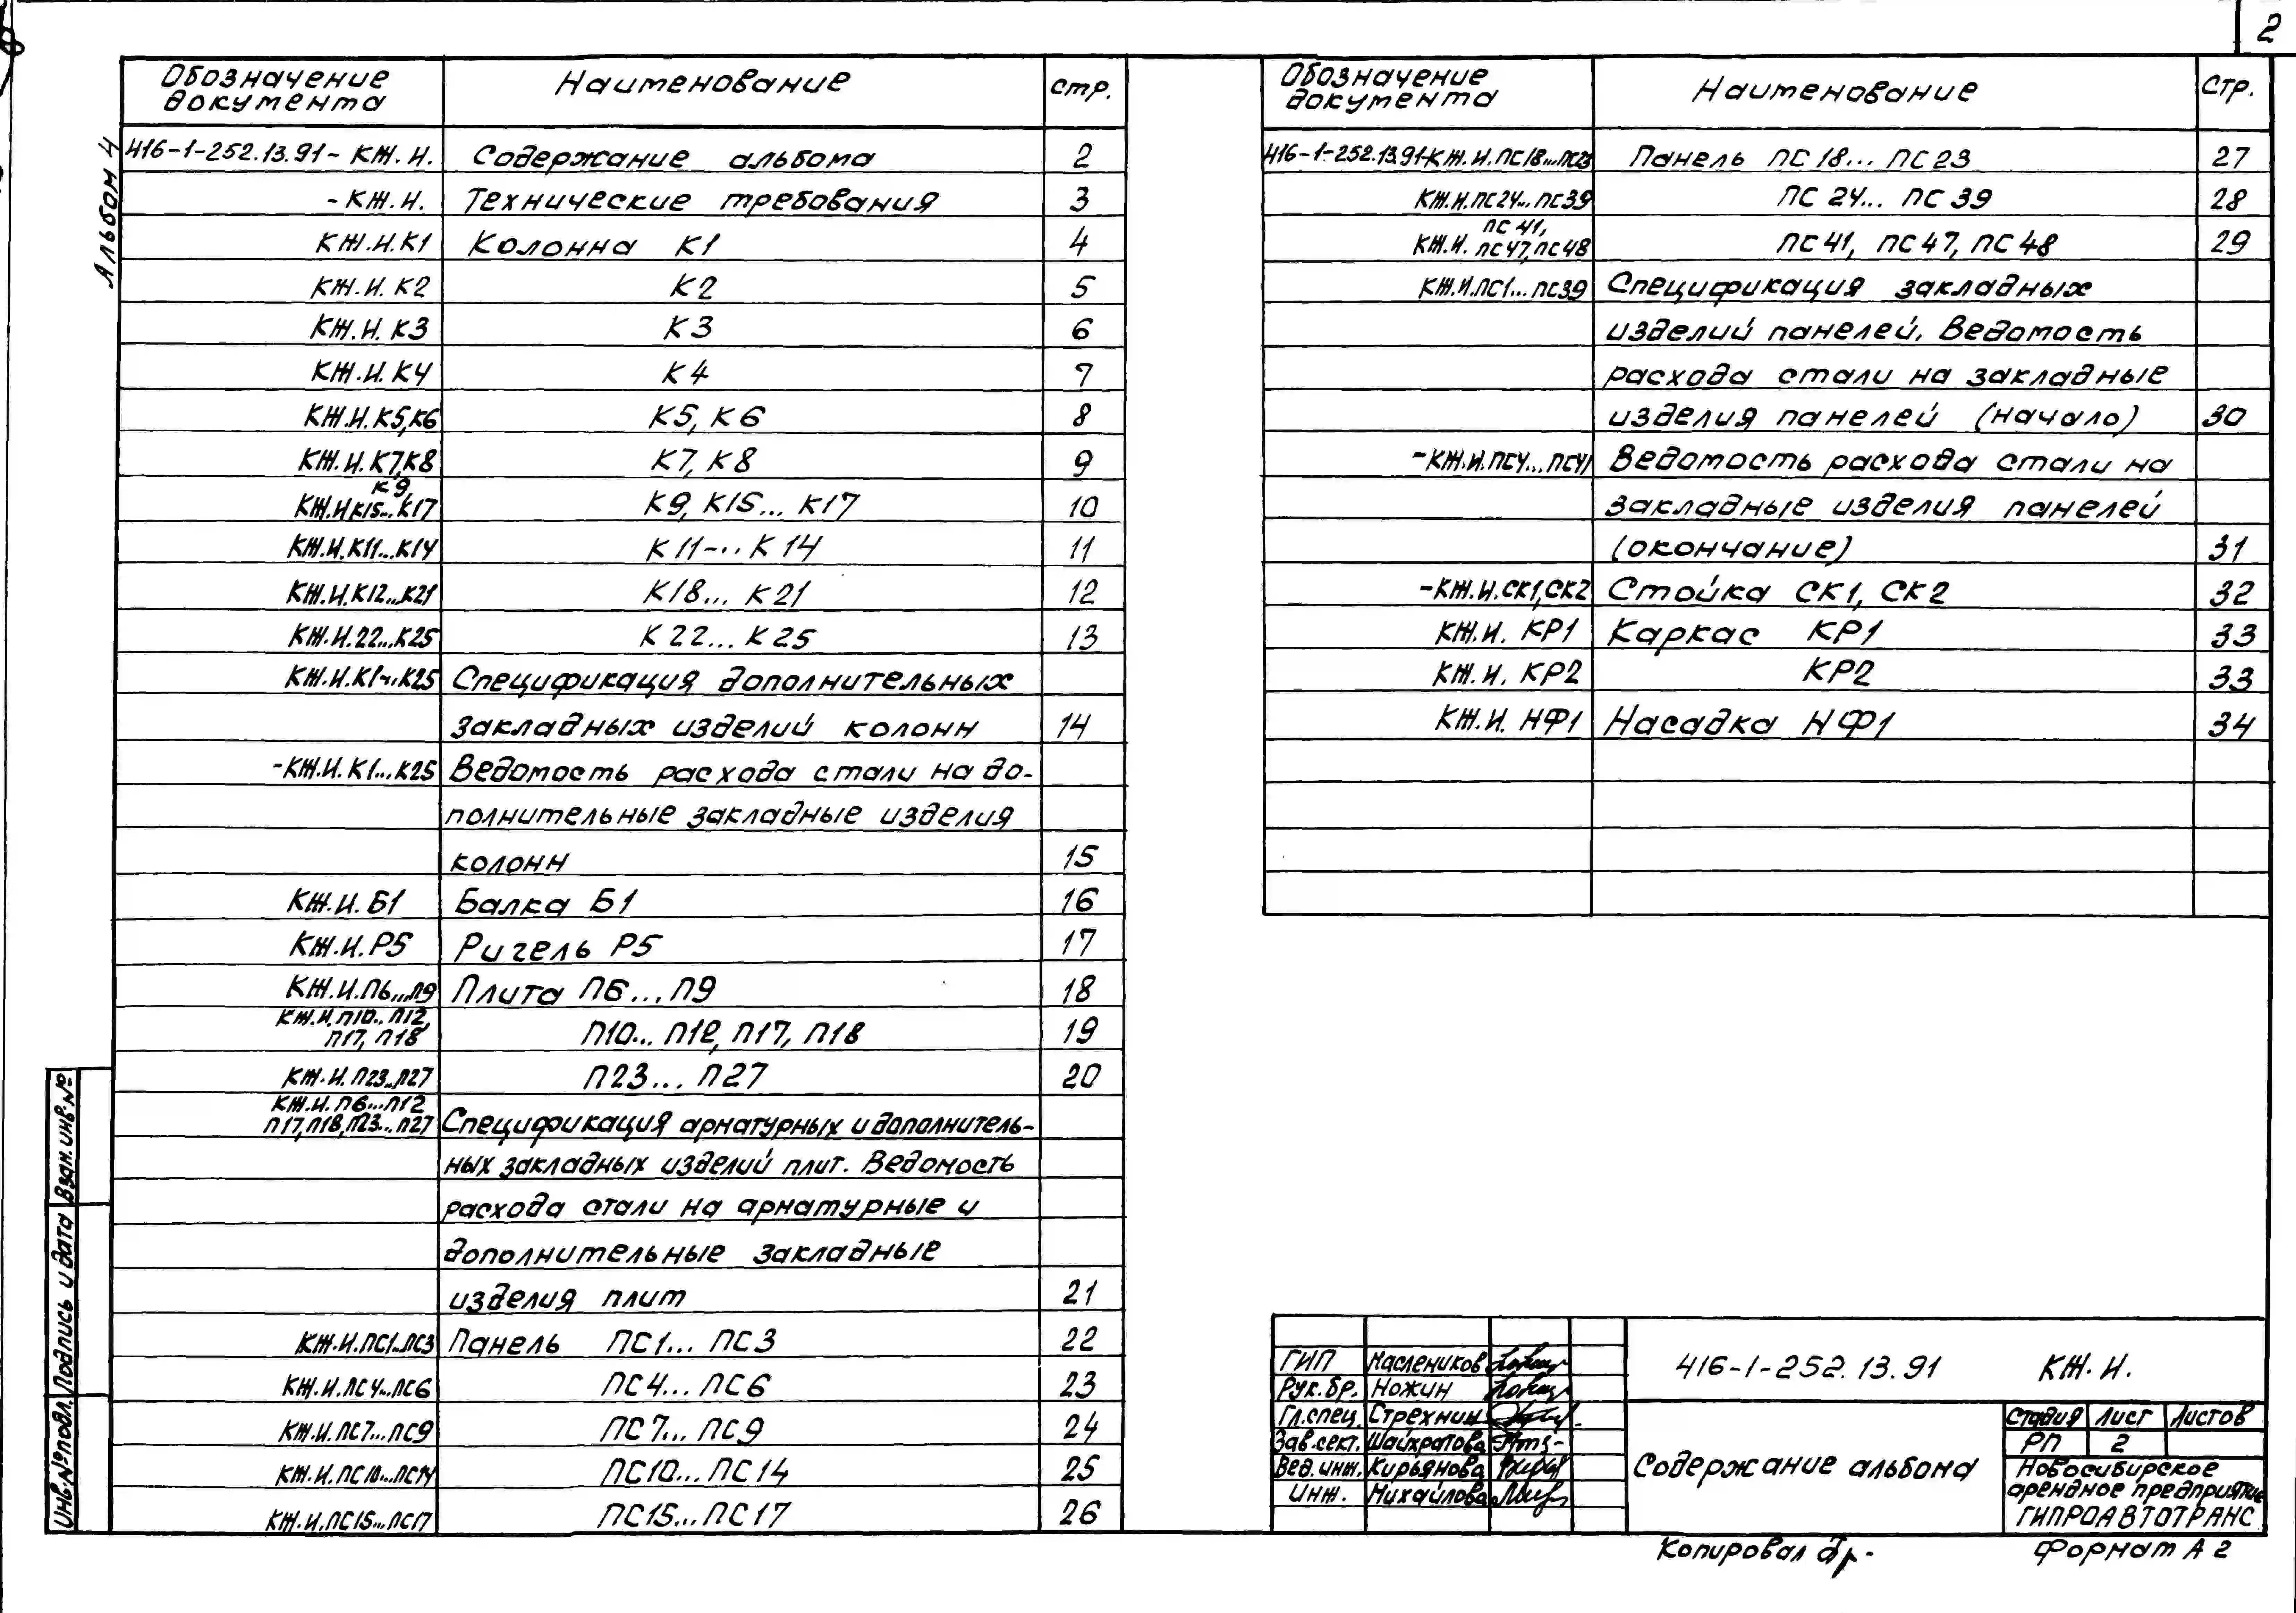 2
Альбом 4
Обозначение документа Наименование стр.
416-1-252.13.91- КЖ.И. Содержание альбома 2
-КЖ.И. Технические требования 3
КЖ.И.К1 Колонна К1 4
КЖ.И.К2 К2 5
КЖ.И.К3 К3 6
КЖ.И.К4 К4 7
КЖ.И.К5,К6 К5, К6 8
КЖ.И.К7,К8 К7, К8 9
К9,
КЖ.И.К15...К17 К9, К15... К17 10
КЖ.И.К11...К14 К11-.. К14 11
КЖ.И.К12...К21 К18... К21 12
КЖ.И.22...К25 К22... К25 13
КЖ.И.К1...К25 Спецификация дополнительных
закладных изделий колонн 14
-КЖ.И.К1...К25 Ведомость расхода стали на до-
полнительные закладные изделия
колонн 15
КЖ.И.Б1 Балка Б1 16
КЖ.И.Р5 Ригель Р5 17
КЖ.И.П6...П9 Плита П6...П9 18
КЖ.И.П10..П12,
П17, П18 П10... П12, П17, П18 19
КЖ.И.П23..П27 П23... П27 20
КЖ.И.П6...П12
П17,П18,П23..П27 Спецификация арматурных и дополнитель-
ных закладных изделий плит. Ведомость
расхода стали на арматурные и
дополнительные закладные
изделия плит 21
КЖ.И.ПС1..ПС3 Панель ПС1... ПС3 22
КЖ.И.ПС4...ПС6 ПС4... ПС6 23
КЖ.И.ПС7...ПС9 ПС7... ПС9 24
КЖ.И.ПС10...ПС14 ПС10... ПС14 25
КЖ.И.ПС15...ПС17 ПС15... ПС17 26
Обозначение документа Наименование Стр.
416-1-252.13.91-КЖ.И.ПС18...ПС23 Панель ПС18... ПС23 27
КЖ.И.ПС24...ПС39 ПС24... ПС39 28
ПС41,
КЖ.И. ПС47,ПС48 ПС41, ПС47, ПС48 29
КЖ.И.ПС1...ПС39 Спецификация закладных
изделий панелей. Ведомость
расхода стали на закладные
изделия панелей (начало) 30
-КЖ.И.ПС4...ПС41 Ведомость расхода стали на
закладные изделия панелей
(окончание) 31
-КЖ.И.СК1,СК2 Стойка СК1, СК2 32
КЖ.И. КР1 Каркас КР1 33
КЖ.И. КР2 КР2 33
КЖ.И. НФ1 Насадка НФ1 34
Взам.инв.№
Подпись и дата
Инв.№ подл.
ГИП Маслеников
Рук.бр. Ножин
Гл.спец. Стрехнин
Зав.сект. Шайхратова
Вед.инж. Кирьянова
Инж. Михайлова
416-1-252.13.91 КЖ.И.
Содержание альбома
Стадия Лист Листов
РП 2
Новосибирское
арендное предприятие
ГИПРОАВТОТРАНС
Копировал
Формат А2